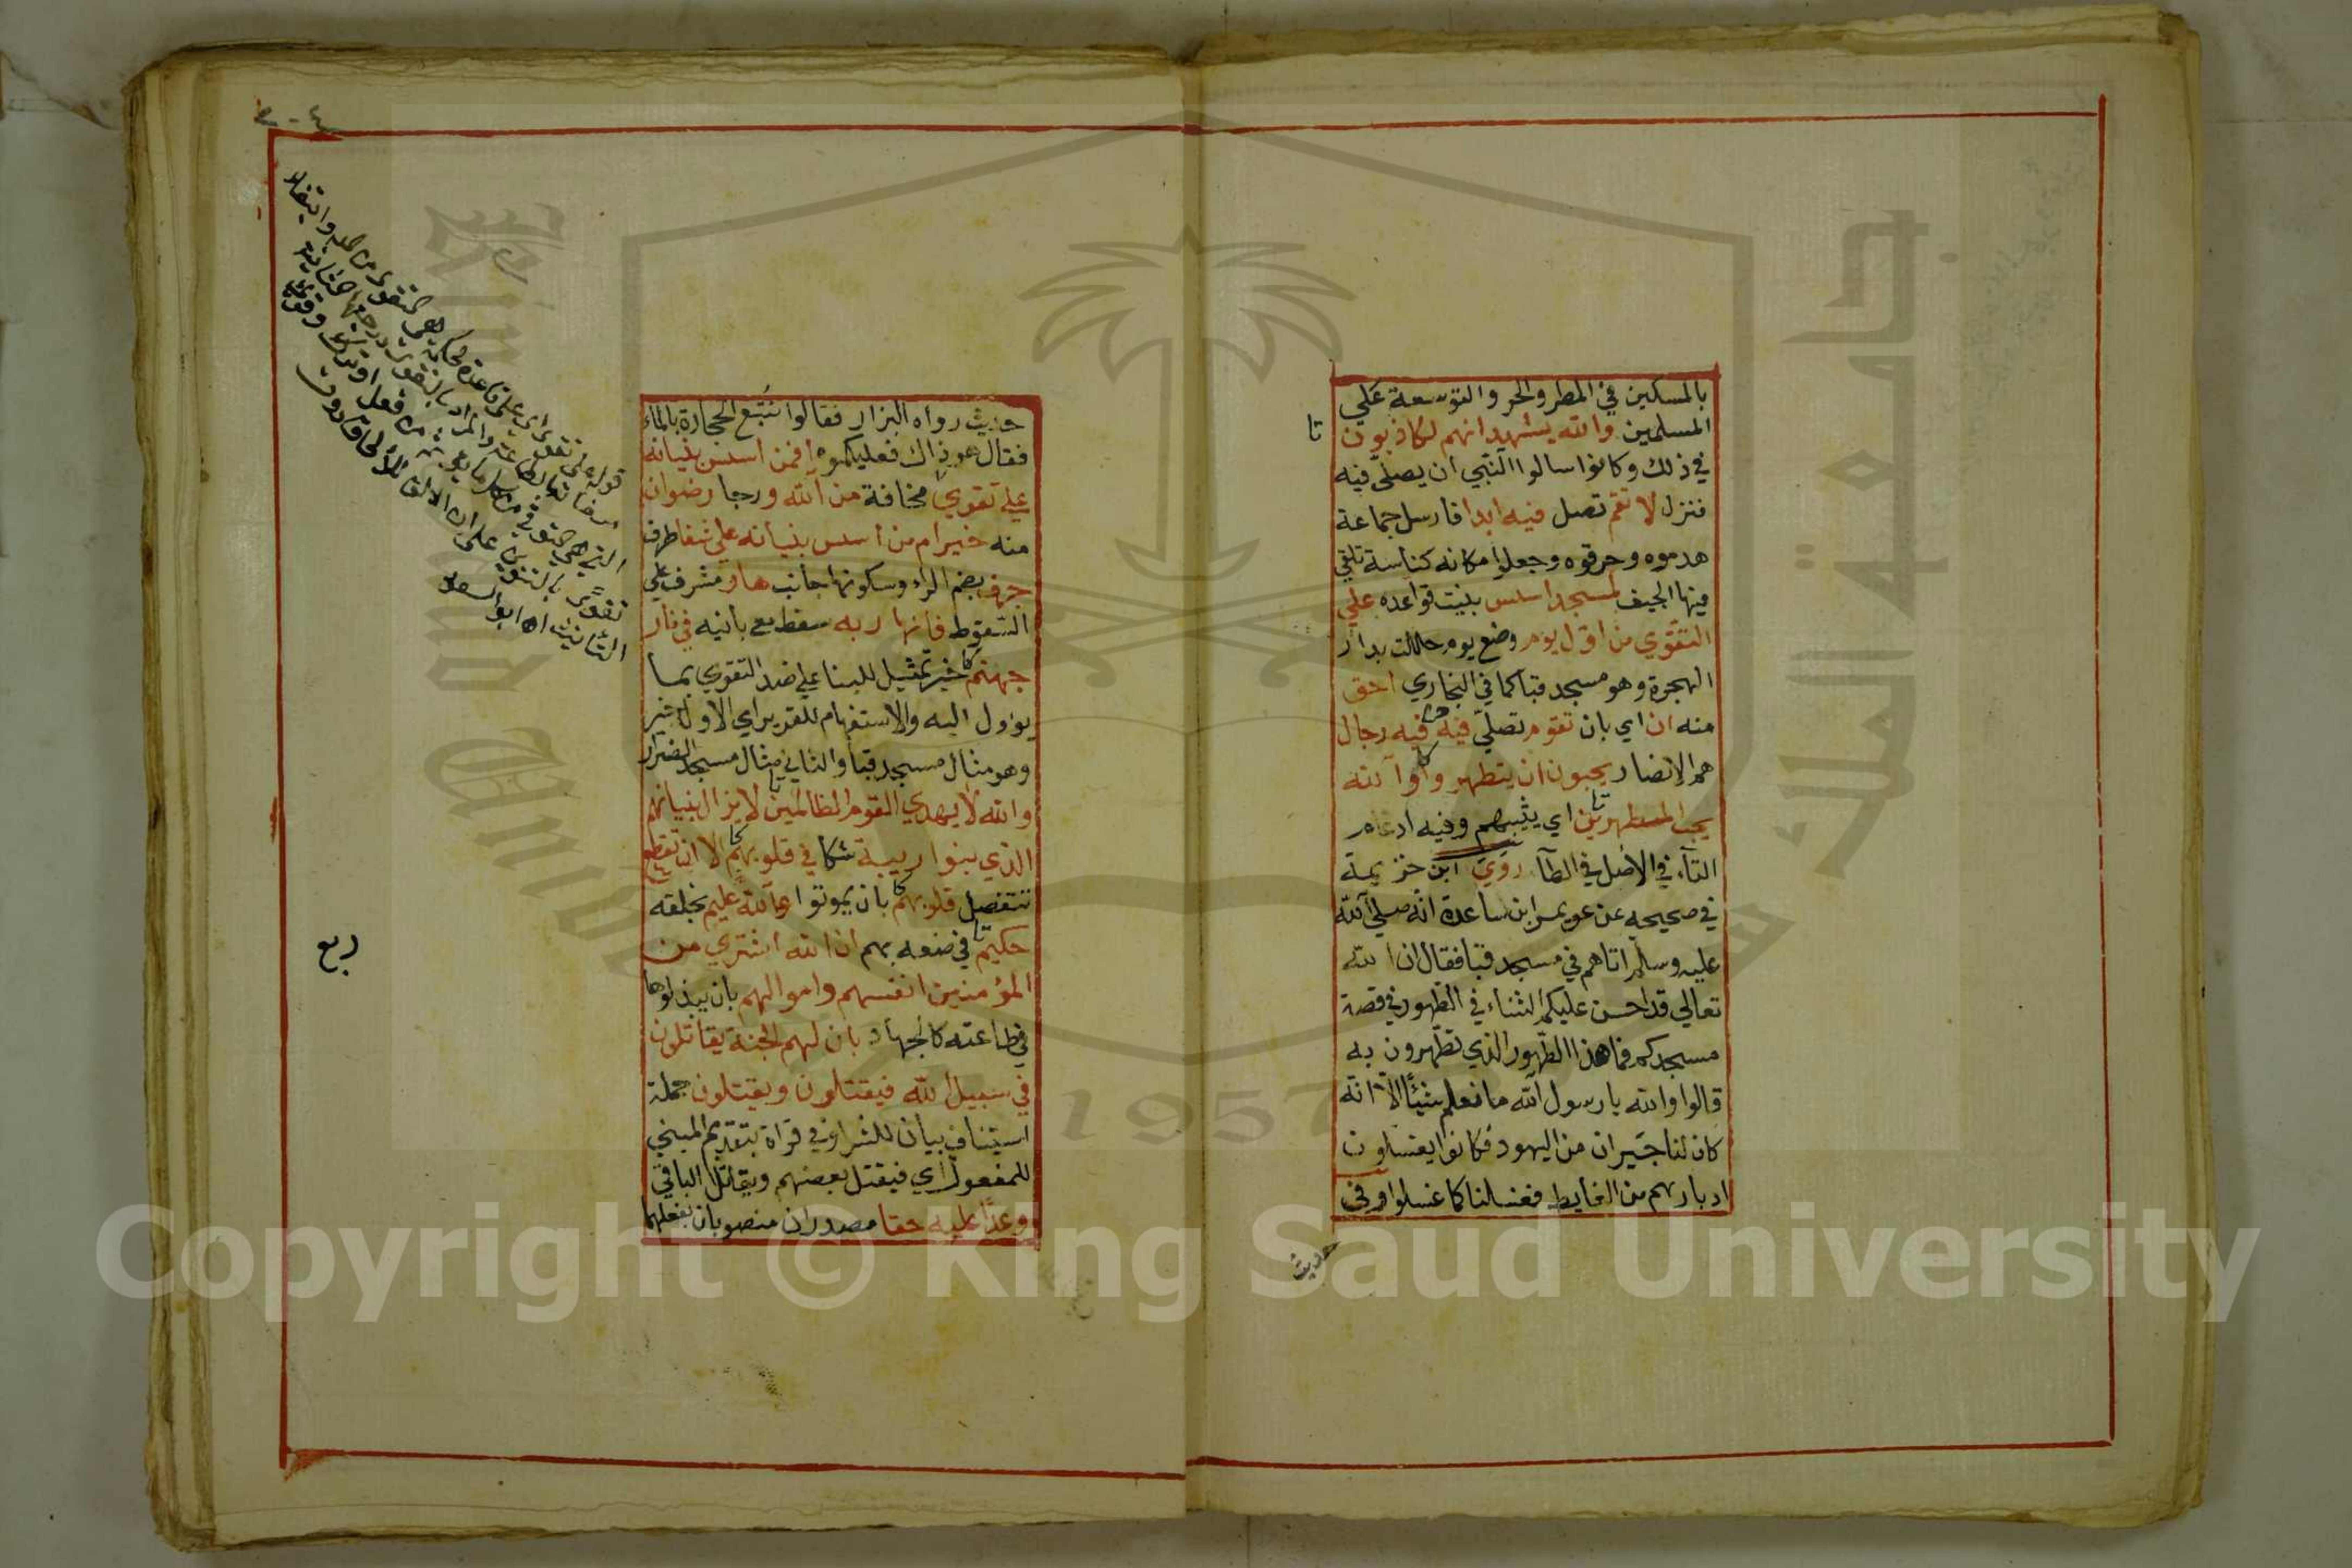 بالمسكين في المطر والحر والتوسعة علي
المسلمين والله يشهد انهم لكاذبون
تا
في ذلك وكانوا سالوا النبي ان يصلي فيه
فنزل لا تقم تصل فيه ابدا فارسل جماعة
هدموه وحرقوه وجعلوا مكانه كناسة تلقي
فيها الجيف لمسجد اسس بنيت قواعده علي
التقوي من اول يوم وضع يوم حللت بدار
الهجرة وهو مسجد قبا كما في البخاري احق
منه ان اي بان تقوم تصلي فيه فيه رجال
هم الانصار يحبون ان يتطهروا والله
يحب المطهرين اي يثيبهم وفيه ادغام
التاء في الاصل في الطاء روي ابن خزيمة
في صحيحه عن عويمر ابن ساعدة انه صلي الله
عليه وسلم اتاهم في مسجد قبا فقال ان الله
تعالي قد احسن عليكم الثناء في الطهور في قصة
مسجدكم فما هذا الطهور الذي تطهرون به
قالوا والله يا رسول الله ما نعلم شيئا الا انه
كان لنا جيران من اليهود فكانوا يغسلون
ادبارهم من الغايط فغسلنا كما غسلوا وفي
حديث
حديث رواه البزار فقالوا نتبع الحجارة بالماء
فقال هو ذاك فعليكموه افمن اسس بنيانه
علي تقوي مخافة من الله ورجا رضوان
منه خير ام من اسس بنيانه علي شفا طرف
جرف بضم الراء وسكونها جانب هار مشرف علي
السقوط فانهار به سقط مع بانيه في نار
جهنم خير تمثيل للبنا علي ضد التقوي بما
يوول اليه والاستفهام للتقرير اي الاول خير
وهو مثال مسجد قبا والثاني مثال مسجد الضرار
والله لا يهدي القوم الظالمين لا يزال بنيانهم
الذي بنوا ريبة شكا في قلوبهم الا ان تقطع
تنفصل قلوبهم بان يموتوا والله عليم بخلقه
حكيم في صنعه بهم ان الله اشتري من
المؤمنين انفسهم واموالهم بان يبذلوها
في طاعته كالجهاد بان لهم الجنة يقاتلون
في سبيل الله فيقتلون ويقتلون جملة
استيناف بيان للشرا وفي قراة بتقديم المبني
للمفعول اي فيقتل بعضهم ويقاتل الباقي
وعدا عليه حقا مصدران منصوبان بفعلهما
ربع
قوله علي تقوي اي علي قاعدة محكمة هي التقوي من الله وابتغاء
مرضاته بالطاعة والمراد بالتقوي درجتها الثانية
التي هي التوقي من كل ما يؤثم من فعل او ترك وقري
تقوي بالتنوين علي ان الالف للالحاق دون
التانيث اه ابو السعود
Copyright © King Saud University
جامعة الملك
1957